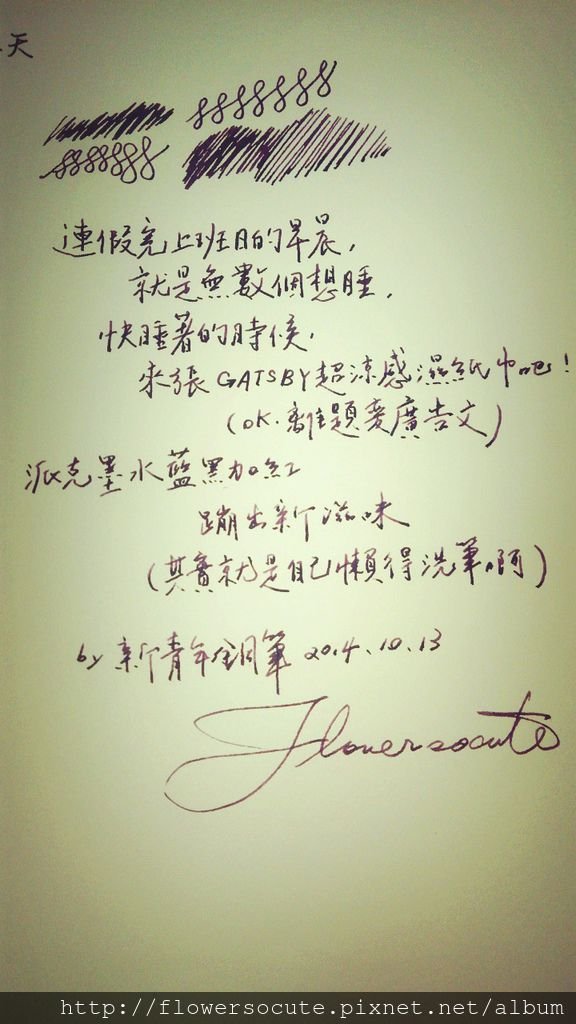 天
連假完上班日的早晨，
就是無數個想睡，
快睡著的時候，
來張GATSBY超涼感濕紙巾吧！
(OK.離題變廣告文)
派克墨水藍黑加紅
蹦出新滋味
(其實就是自己懶得洗筆啊)
by 新青年鋼筆 2014.10.13
Flowersocute
http://flowersocute.pixnet.net/album